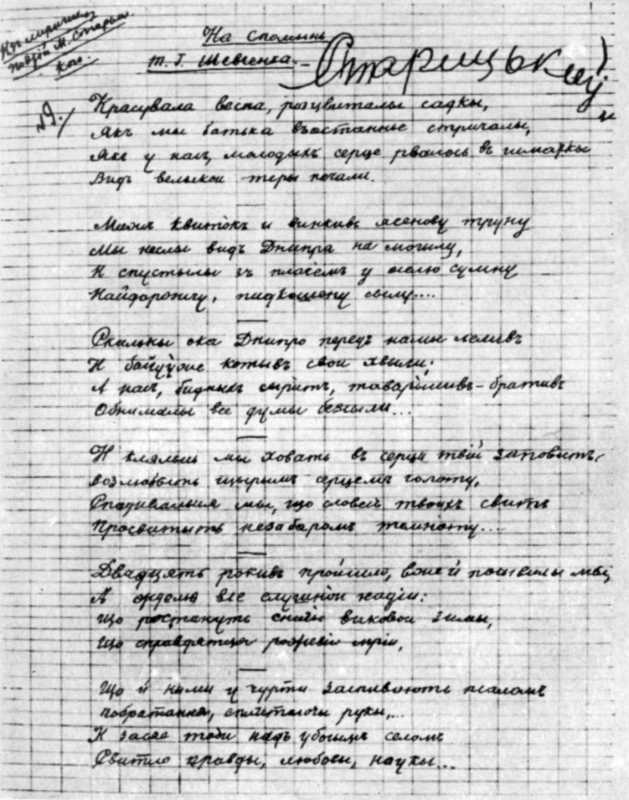 На спомынъ
Т. Г. Шевченка.
Старицький
№9.
Красувала весна, розцвиталы садкы,
Якъ мы батька въостаннье стричалы,
Якъ у насъ, молодыхъ серце рвалось въ шматкы
Видъ велыкои теры печали.
Мижъ квитокъ и винкивъ ясенову труну
Мы неслы видъ Днипра на могилу,
И спустылы зъ плачемъ у землю сумну
Найдорожчу, пидкошену сылу....
Скильки ока Днипро передъ намы леливъ
И байдуже котывъ свои хвыли;
А насъ, бидныхъ сыритъ, товарышивъ-бративъ
Обнималы все думы безсыли...
И клялысь мы ховать въ серци твій заповитъ,
возлюбыть щырымъ серцемъ голоту,
Сподивалысь мы, що словъ твоихъ свитъ
Просвитыть незабаромъ темноту....
Двадцять рокивъ пройшло,
А ждемо все слушнои надіи:
Що ростануть снигы виковои зимы,
Що справдятця рожеви мріи,
Що й намы у гурти заспивають псаломъ
побратання, сплитаючы рукы,...
И засяє тоби надъ убогымъ селомъ
Свитло правды, любовы, наукы...